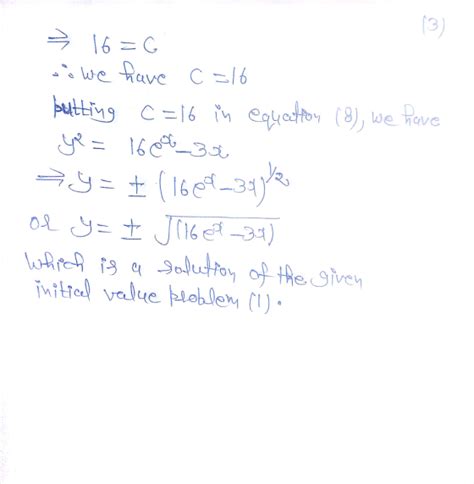 (3)
⇒ 16 = C
∴ we have C = 16
putting C = 16 in equation (8), we have
y² = 16eˣ - 3x
⇒ y = ± (16eˣ - 3x)^1/2
or y = ± √(16eˣ - 3x)
which is a solution of the given
initial value problem (1).